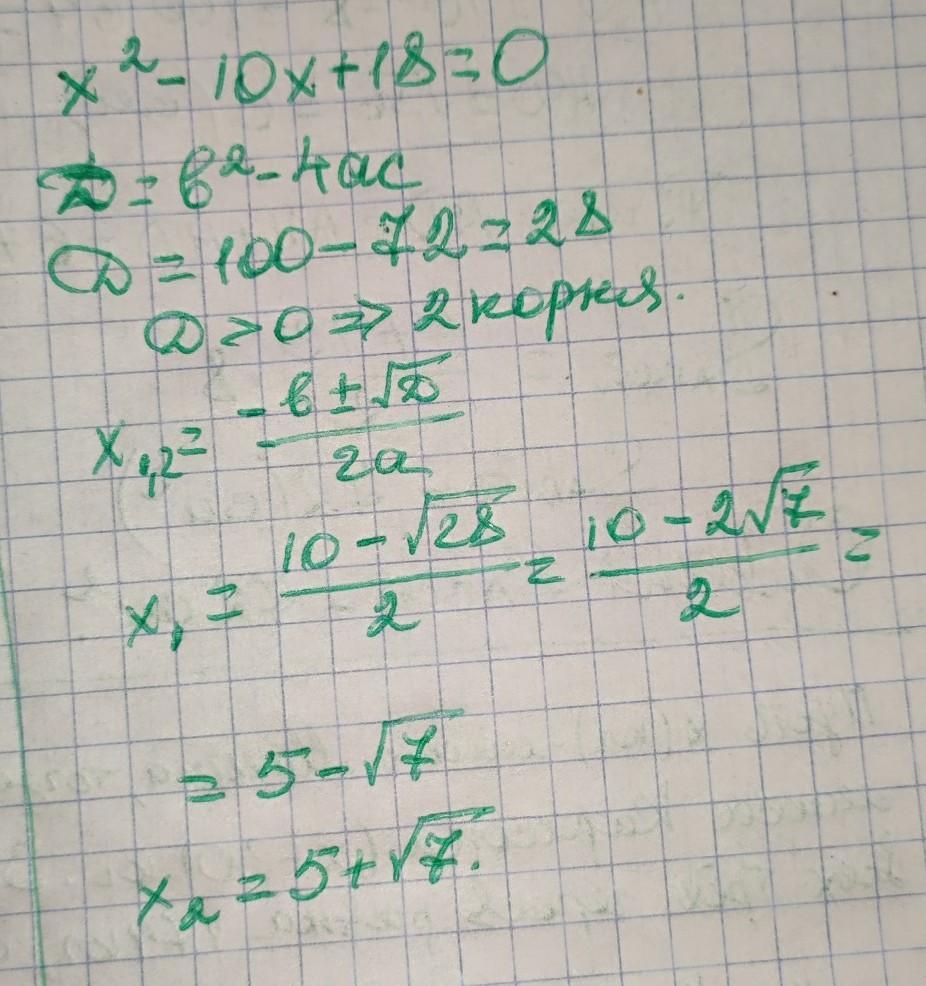 x² - 10x + 18 = 0
D = b² - 4ac
D = 100 - 72 = 28
D > 0 => 2 корня.
x₁,₂ = (-b ± √D) / 2a
x₁ = (10 - √28) / 2 = (10 - 2√7) / 2 =
= 5 - √7
x₂ = 5 + √7.